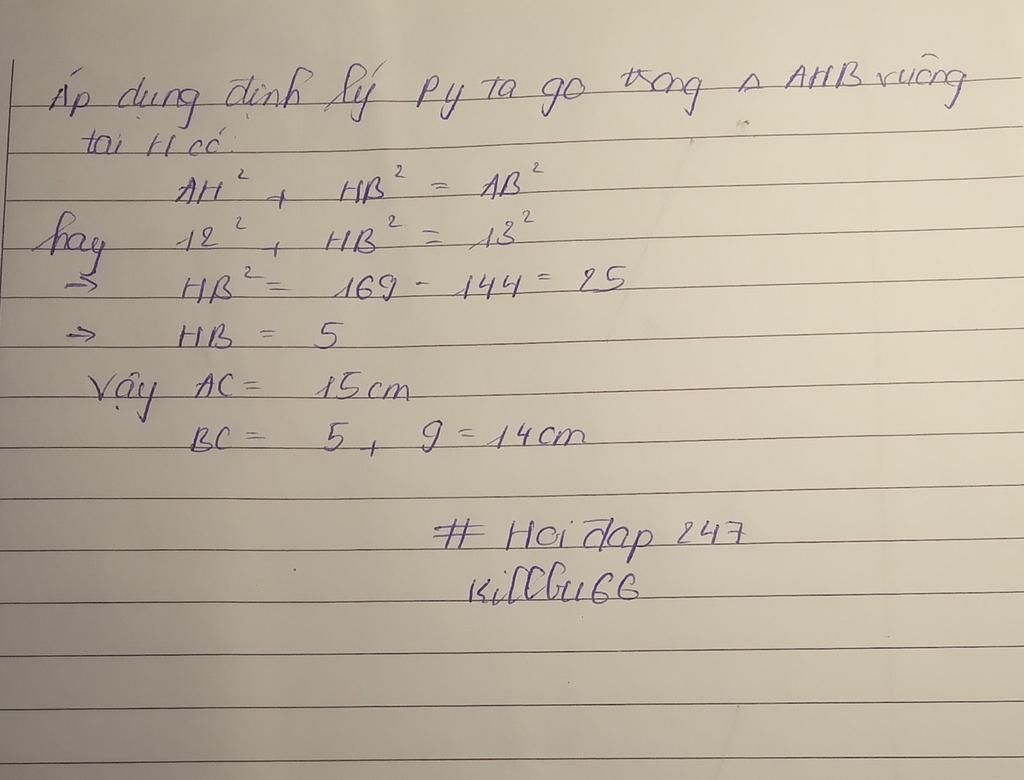 Áp dụng định lý Py ta go trong Δ AHB vuông
tại H có:
AH² + HB² = AB²
hay 12² + HB² = 13²
→ HB² = 169 - 144 = 25
→ HB = 5
Vậy AC = 15cm
BC = 5 + 9 = 14cm
# Hoi đap 247